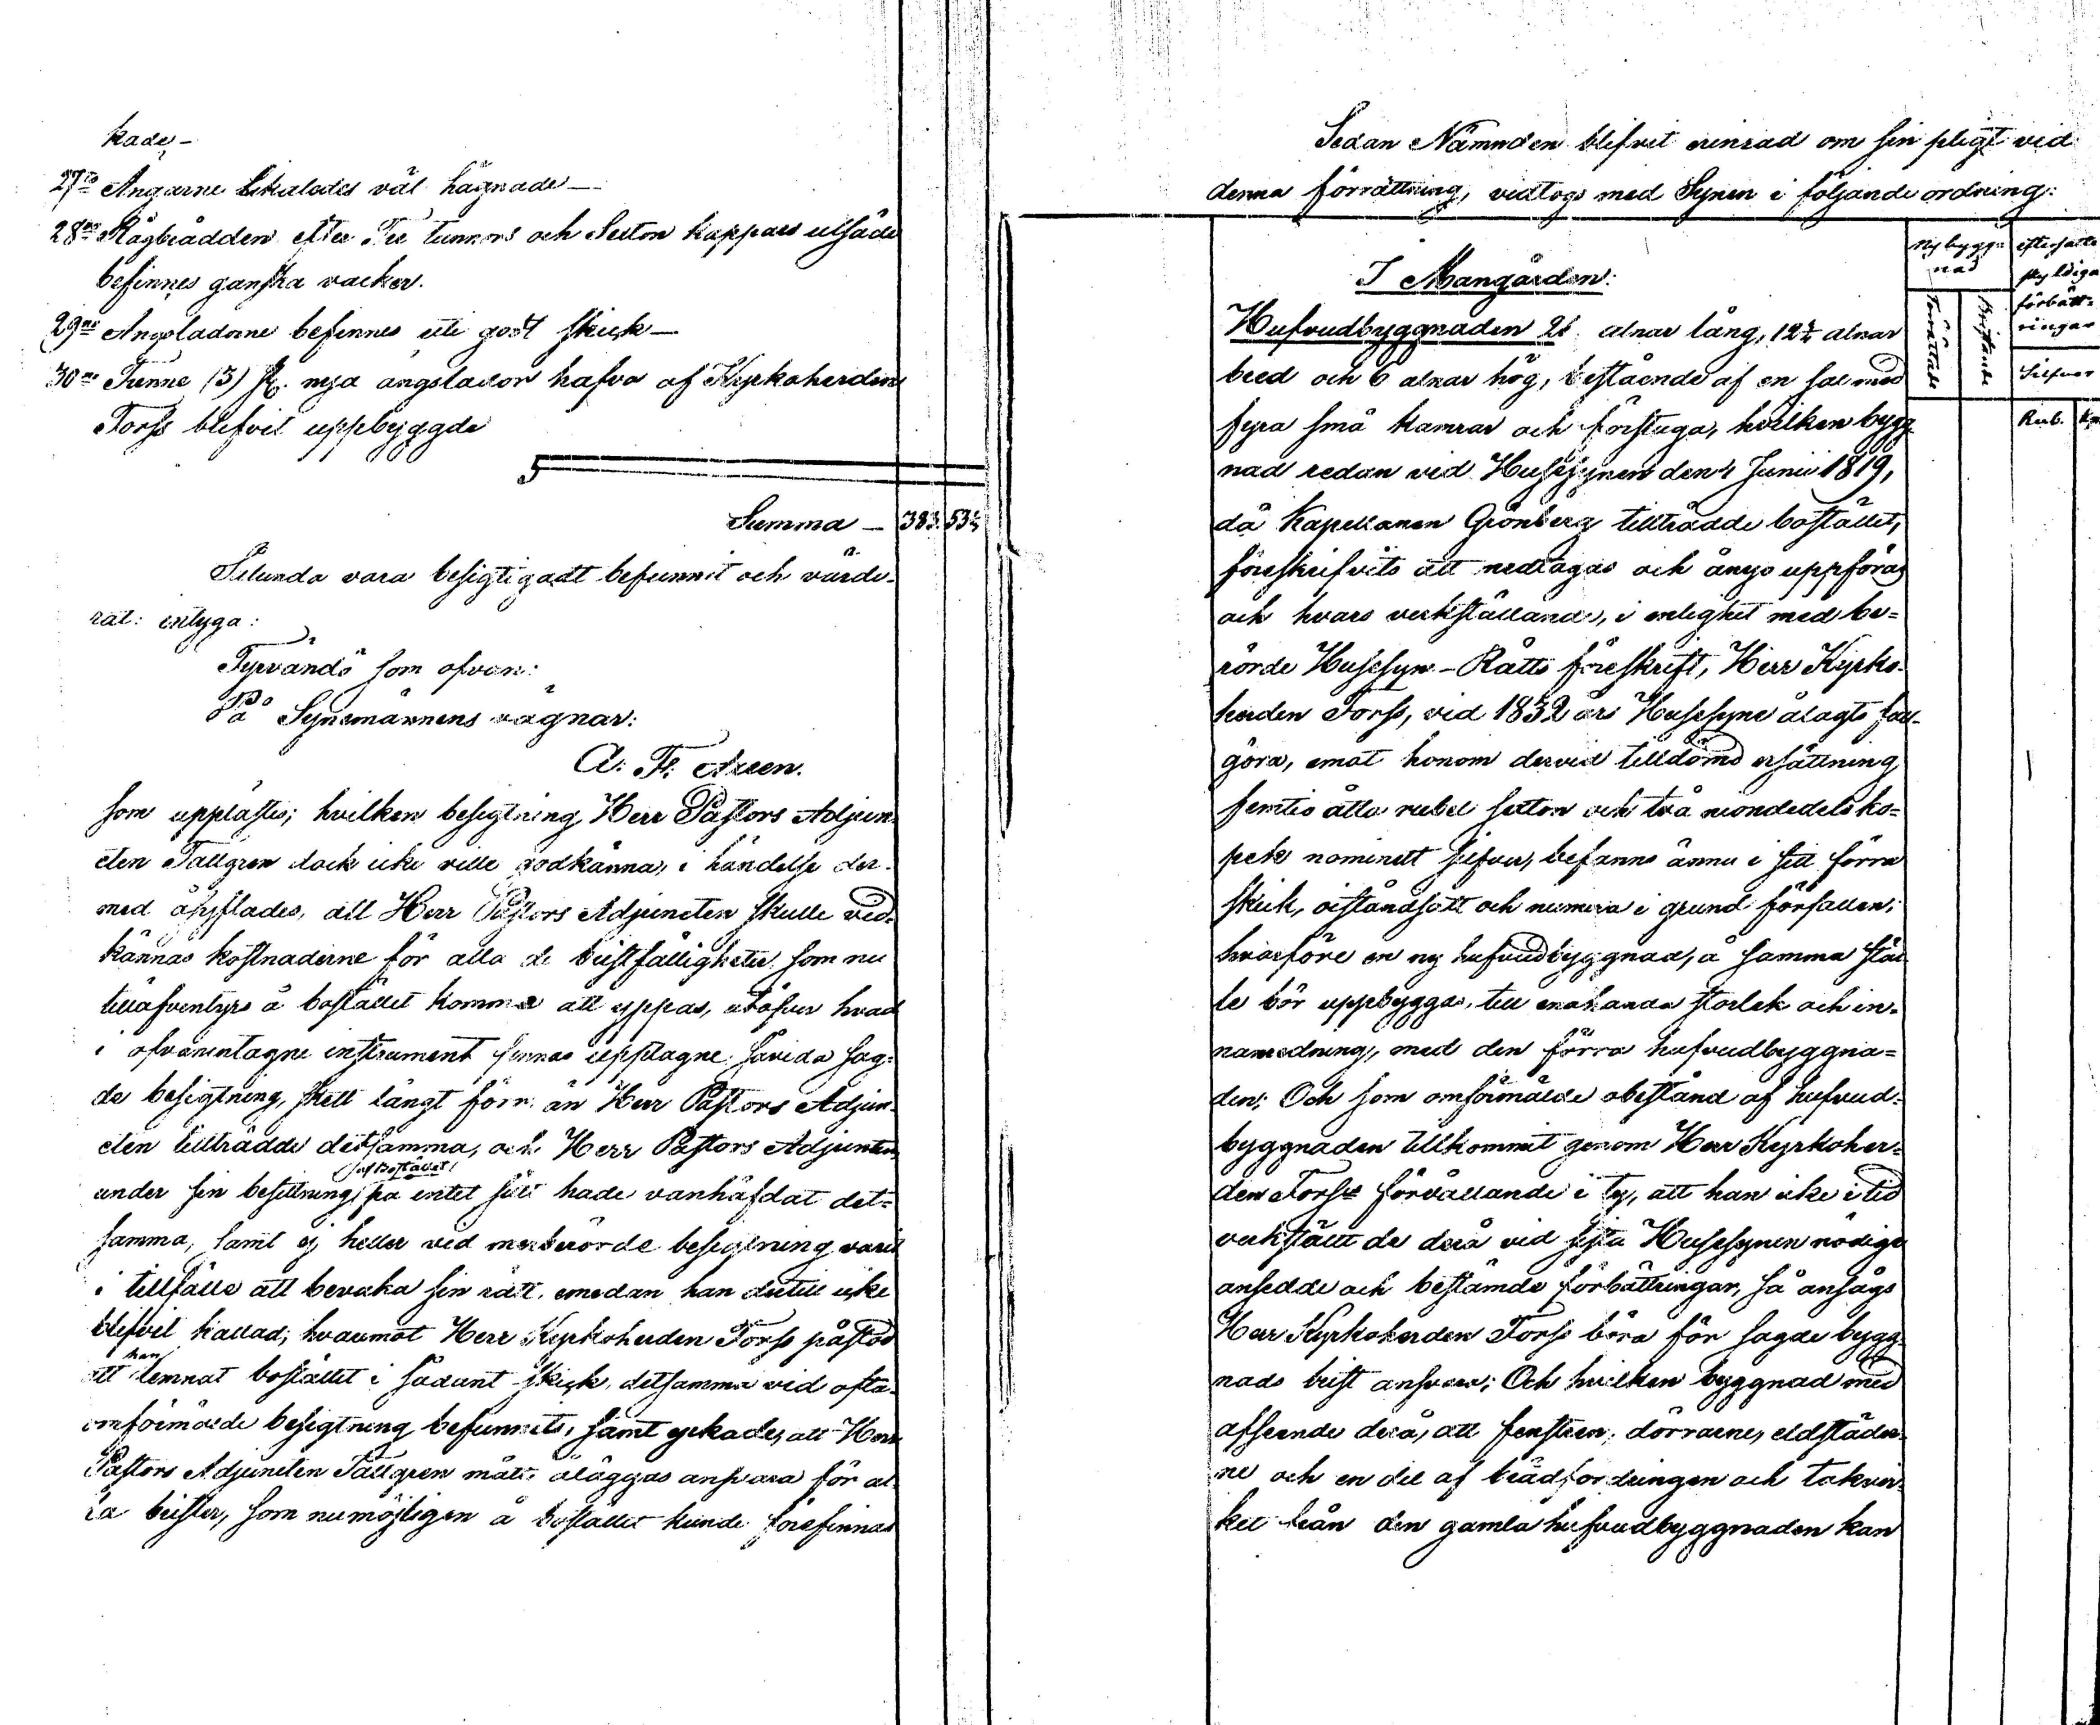 kade_
27no Ängarne likaledes väl hägnade_
28no Rågbrådden efter Tre tunnors och Sexton kappars utsäde
befinnes ganska vacker.
29no Ängsladorne befinnes uti godt skick_
30no Trenne (3) st. nya ängslador hafva af Kyrkoherden
Forss blifvit uppbyggde
Summa _ 383. 53½
Sålunda vara besigtigadt befunnit och värde-
rat: intyga:
Tyrvändö som ofvan:
På Synemännens vägnar:
A. F.
som upplästes; hvilken besigtning Herr Pastors Adjunc-
ten Tallgren dock icke ville godkänna, i händelse der-
med åsyftades, att Herr Pastors Adjuncten skulle vid-
kännas kostnaderne för alla de bristfälligheter som nu
tilläfventyrs å bostället komma att yppas, utöfver hvad
i ofvanintagne instrument finnas upptagne, såvida sag-
de besigtning, skett långt förr än Herr Pastors Adjunc-
ten tillträdde detsamma, och Herr Pastors Adjuncten
under sin besittning (af Bostället) på intet sätt hade vanhäfdat det-
samma, samt ej heller vid merberörde besigtning varit
i tillfälle att bevaka sin rätt, emedan han dertill icke
blifvit kallad; hvaremot Herr Kyrkoherden Forss påstod
att han lemnat bostället i sådant skick, detsamma vid ofta-
omförmälde besigtning befunnits, samt yrkades, att Herr
Pastors Adjuncten Tallgren måtte åläggas ansvara för al-
la brister, som numöjligen å bostället kunde förefinnas
Sedan Nämnden blifvit erinrad om sin pligt vid
denna förrättning, vidtogs med Synen i följande ordning:
Nybygg-
nad
Förrättade
Bristande
eftersatte
skyldiga
förbätt-
ringar
Silfver
Rub. Kop
I Mangården:
Hufvudbyggnaden 21 alnar lång, 12½ alnar
bred och 6 alnar hög, bestående af en sal med
fyra små kamrar och förstuga, hvilken bygg-
nad redan vid Husesynen den 4 Junii 1819,
då Kapellanen Grönberg tillträdde bostället,
föreskrifvits att nedtagas och ånyo uppföras
och hvars verkställande, i enlighet med be-
rörde Husesyn-Rätts föreskrift, Herr Kyrko-
herden Forss, vid 1832 års Husesyne ålagts full-
göra, emot honom dervid tilldömd ersättning
femtio åtta rubel sexton och två niondedels ko-
pek nominelt silfver, befanns ännu i sitt förra
skick, oiståndsatt och numera i grund förfallen;
hvarföre en ny hufvudbyggnad, å samma stäl-
le bör uppbyggas, till enahanda storlek och in-
namredning, med den förra hufvudbyggna-
den; Och som omförmälde obestånd af hufvud-
byggnaden tillkommit genom Herr Kyrkoher-
den Forss' förvållande i ty, att han icke i tid
verkställt de derå vid sista Husesynen nödige
ansedde och bestämde förbättringar, så ansågs
Herr Kyrkoherden Forss böra för sagde bygg-
nads brist ansvara; Och hvilken byggnad med
afseende derå, att fenstren, dörrarne, eldstäder-
ne och en del af brädfordringen och takvir-
ket från den gamla hufvudbyggnaden kan